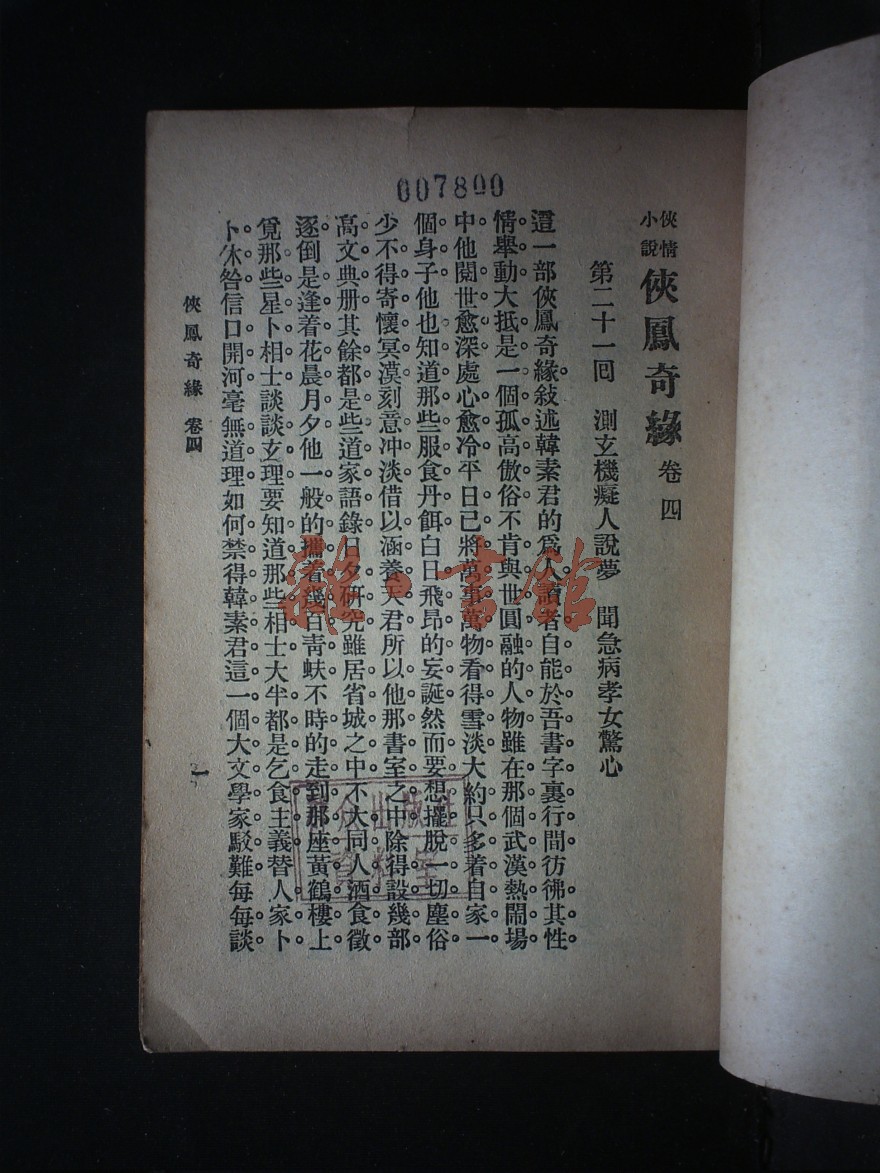 007800
俠情小說 俠鳳奇緣 卷四
第二十一回 測玄機癡人說夢 聞急病孝女驚心
這一部俠鳳奇緣敍述韓素君的爲人讀者自能於吾書字裏行間彷彿其性
情舉動大抵是一個孤高傲俗不肯與世圓融的人物雖在那個武漢熱鬧場
中他閱世愈深處心愈冷平日已將萬事萬物看得雪淡大約只多着自家一
個身子他也知道那些服食丹餌白日飛昂的妄誕然而要想擺脫一切塵俗
少不得寄懷冥漠刻意冲淡借以涵養天君所以他那書室之中除得設幾部
高文典册其餘都是些道家語錄日夕研究雖居省城之中不大同人酒食徵
逐倒是逢着花晨月夕他一般的攜着幾百靑蚨不時的走到那座黃鶴樓上
覓那些星卜相士談談玄理要知道那些相士大半都是乞食主義替人家卜
卜休咎信口開河毫無道理如何禁得韓素君這一個大文學家駁難每每談
俠鳳奇緣 卷四
一
書館
出版社
資料室